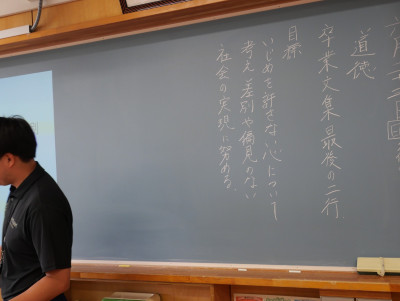 六月二十二日
道徳
卒業文集最後の二行
目標
いじめを許さない心について
考え、差別や偏見のない
社会の実現に努める。